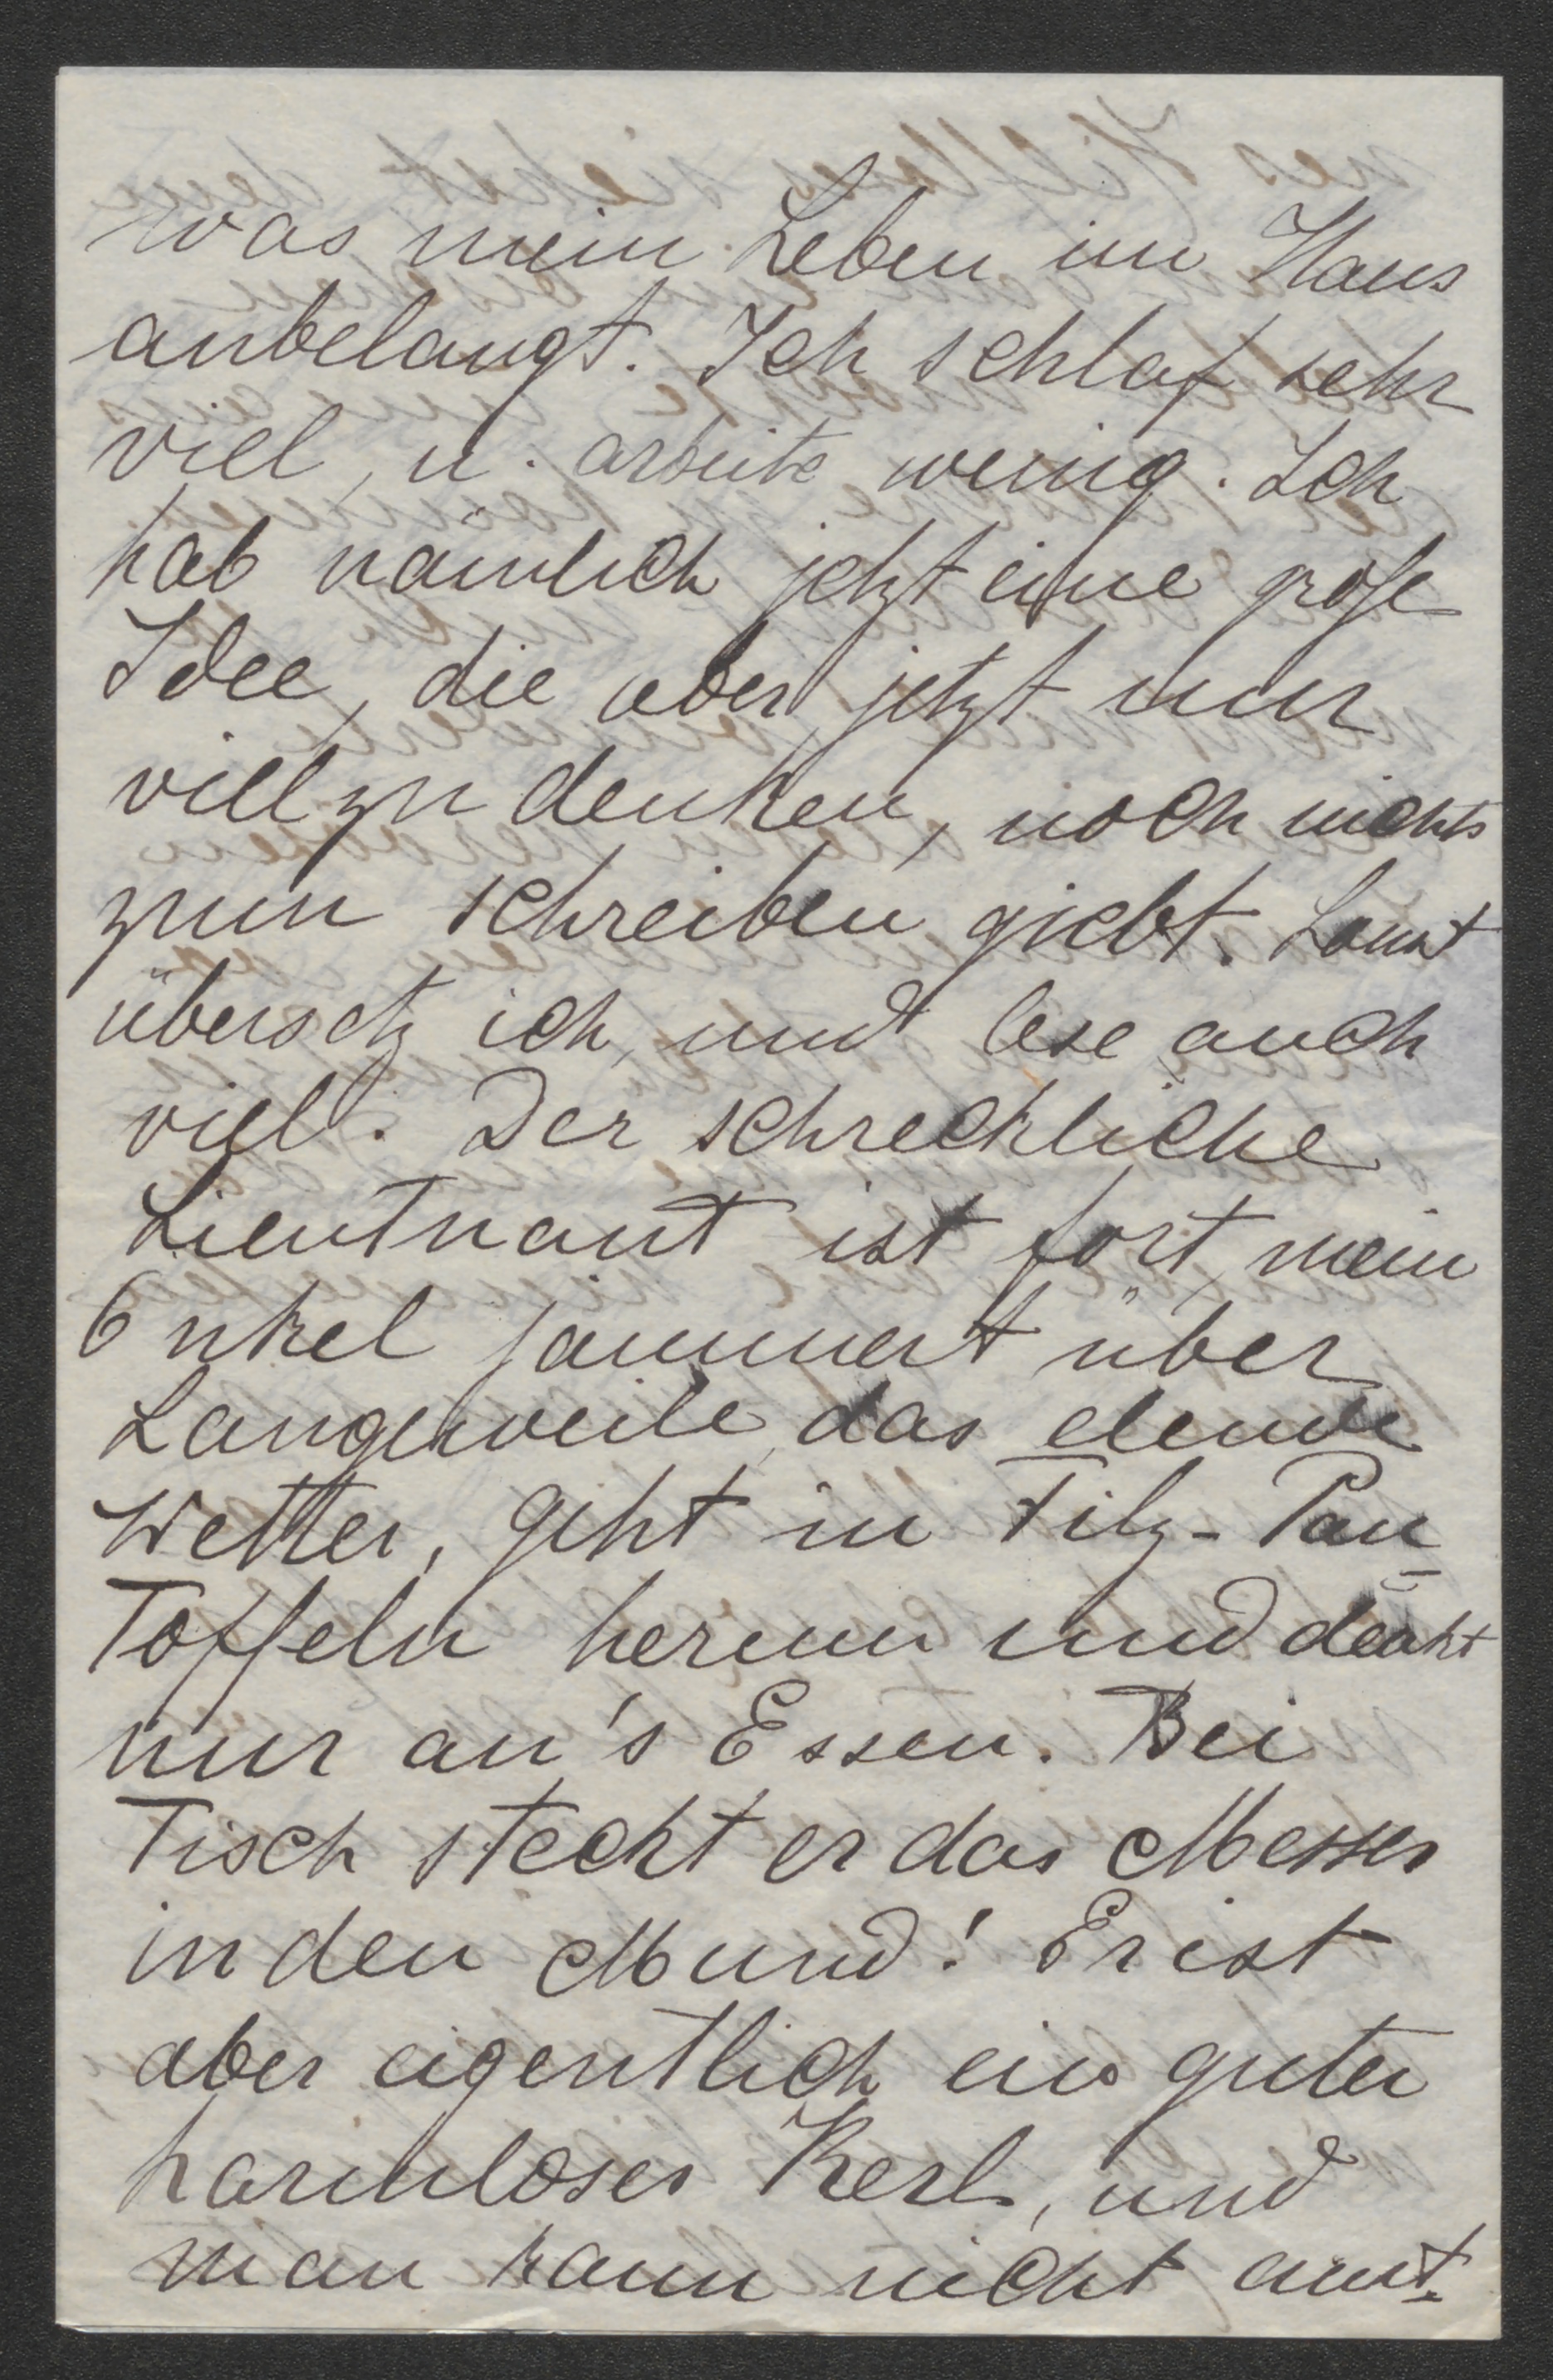 was mein Leben im Haus
anbelangt. Ich schlaf sehr
viel, u. arbeite wenig. Ich
hab nämlich jetzt eine große
Idee, die aber jetzt nur
viel zu denken, noch nichts
zum schreiben giebt. Sonst
übersetz ich, und lese auch
viel. Der schreckliche
Lieutnant ist fort, mein
Onkel jammert über
Langeweile, das elende
Wetter, geht in Filz-Pan-
Toffeln herum und denkt
nur an's Essen. Bei
Tisch steckt er das Messer
in den Mund! Er ist
aber eigentlich ein guter
harmloser Kerl, und
man kann nicht